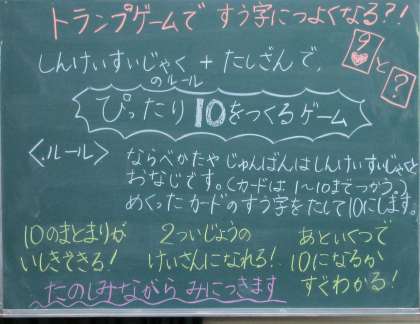 トランプゲームで すう字につよくなる?!
しんけいすいじゃく + たしざんで、
のルール
ぴったり10をつくるゲーム
と ?
<ルール>
ならべかたや じゅんばんは しんけいすいじゃくと
おなじです。(カードは 1〜10までつかう。)
めくったカードのすう字をたして10にします。
10のまとまりが
いしきできる!
2ついじょうの
けいさんになれる!
あといくつで
10になるか
すぐわかる!
たのしみながら みにつきます